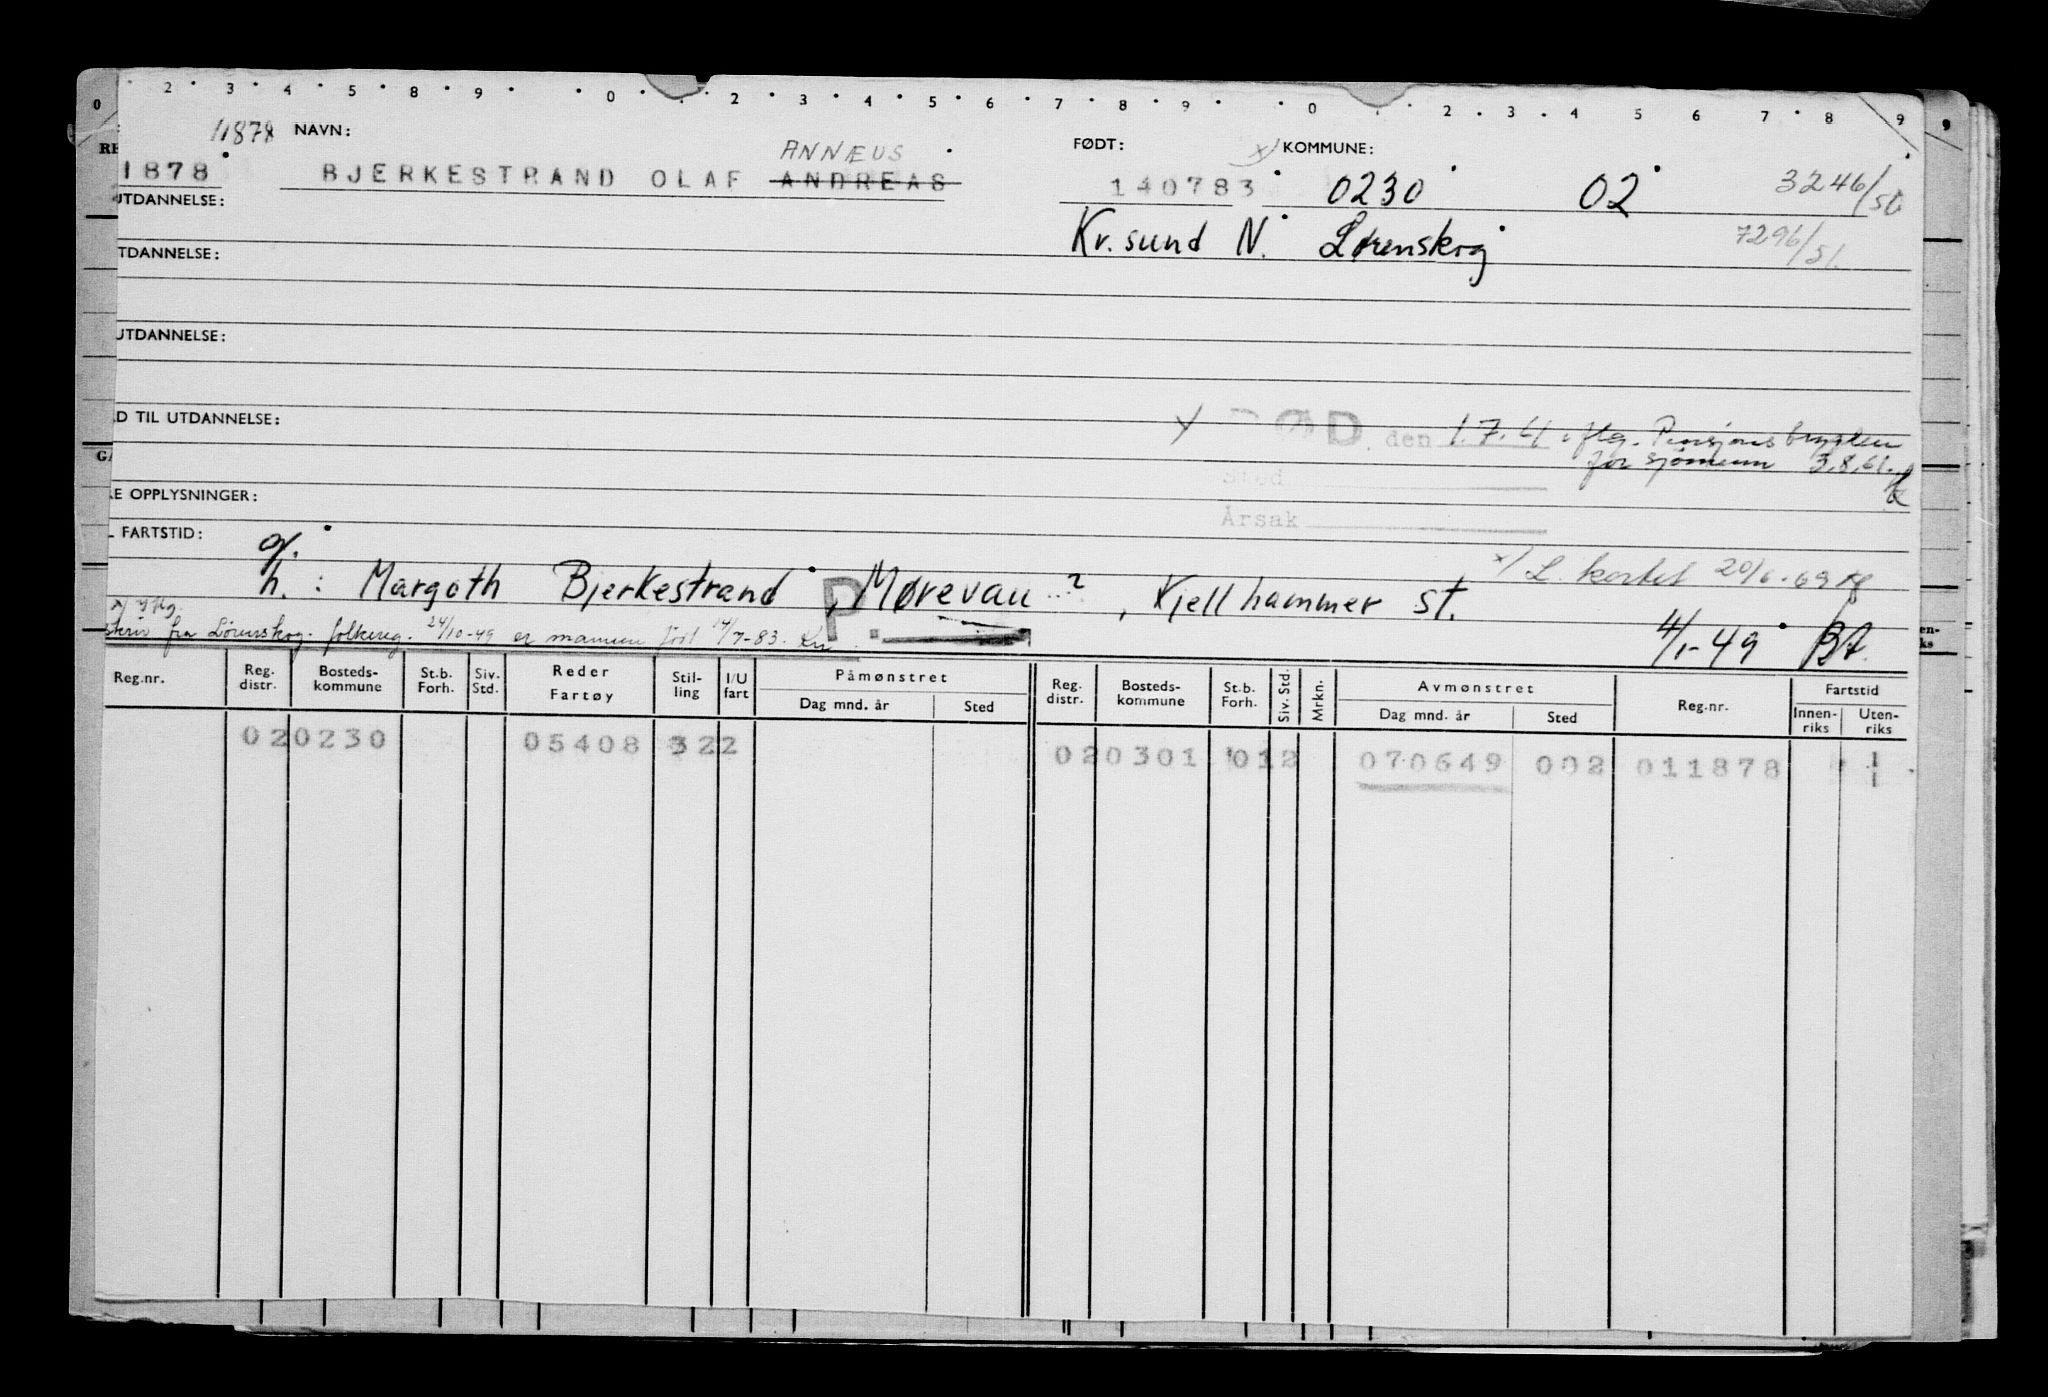 2 3 4 5 8 9 0 2 3 4 5 6 7 8 9 0 2 3 4 5 6 7 8 9
0 9
11878 NAVN: ANNÆUS FØDT: x) KOMMUNE:
1878 BJERKESTRAND OLAF ANDREAS 140783 0230 02 3246/50
UTDANNELSE:
Kr.sund N. Lørenskog 7296/51.
TDANNELSE:
UTDANNELSE:
AD TIL UTDANNELSE:
DØD. den 1.7.61 iflg. Pensjonstrygden
for sjømenn 3.8.61.
Sted
RE OPPLYSNINGER:
Årsak
L FARTSTID:
g.
x/ L. kortet 20/6-69
h. : Margoth Bjerkestrand, "Mørevau"?, Kjellhammer st.
P.
x/ iflg.
skriv fra Lørenskog folkereg. 24/10-49 er mannen født 14/7-83.
4/1-49 BA.
Reg.nr. Reg. distr. Bosteds-kommune St.b. Forh. Siv. Std. Reder Fartøy Stil-ling I/U fart Påmønstret Dag mnd. år Sted Reg. distr. Bosteds-kommune St.b. Forh. Siv. Std. Mrkn. Avmønstret Dag mnd. år Sted Reg.nr. Fartstid Innen-riks Uten-riks
020230 05408 322 020301 012 070649 002 011878